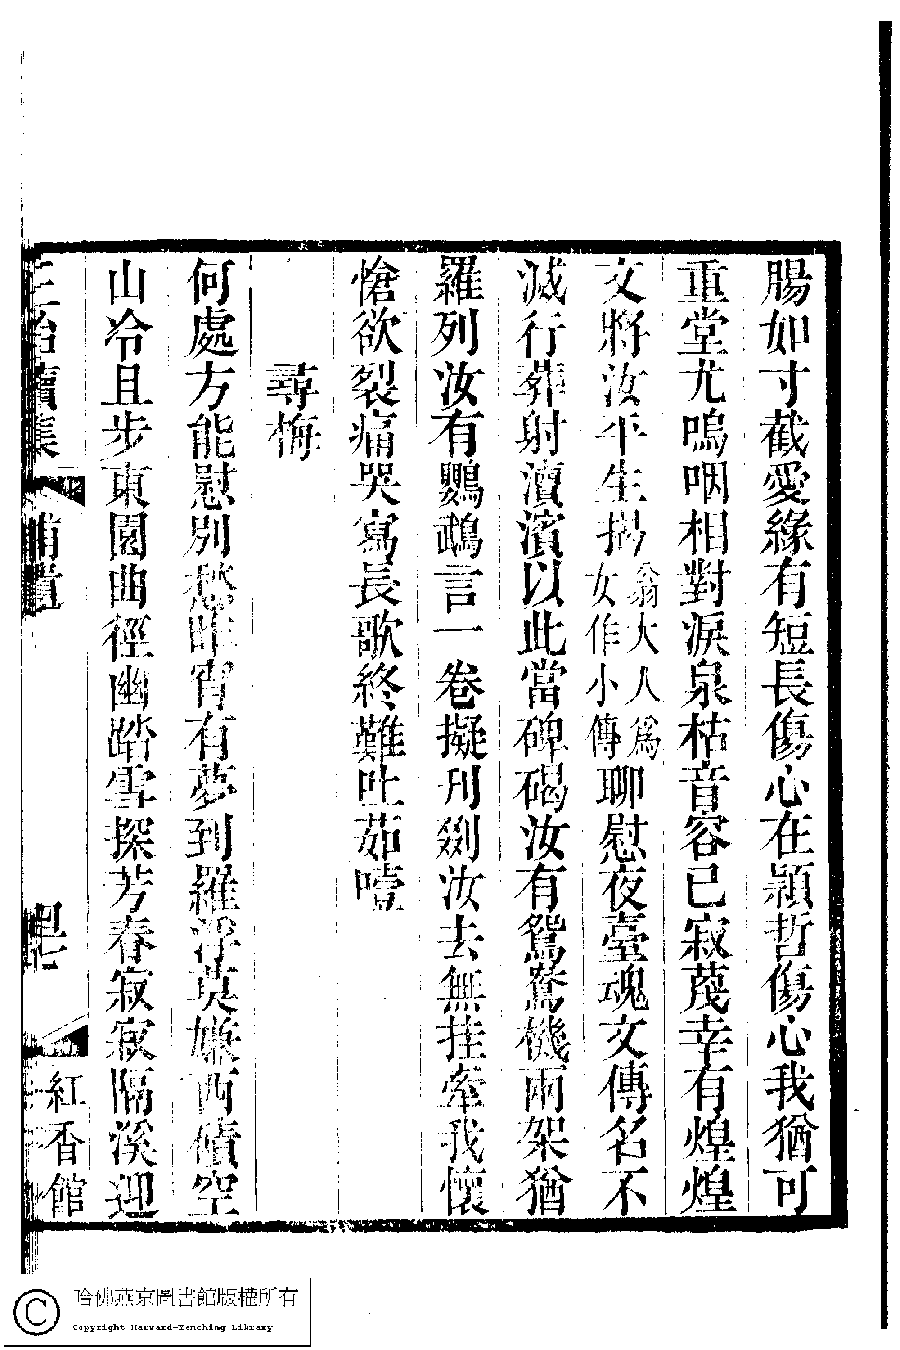 腸如寸截愛緣有短長傷心在穎哲傷心我猶可
重堂尤嗚咽相對淚泉枯音容已寂蔑幸有煌煌
文將汝平生揭翁大人爲女作小傳聊慰夜臺魂文傳名不
滅行葬射瀆濱以此當碑碣汝有鴛鴦機兩架猶
羅列汝有鸚鵡言一卷擬刋劂汝去無挂牽我懷
愴欲裂痛哭寫長歌終難吐茹噎
尋梅
何處方能慰別愁昨宵有夢到羅浮莫嫌西磧空
山冷且步東園曲徑幽踏雪探芳春寂寂隔溪迎
續集
補遺
紅香館
哈佛燕京圖書館版權所有
Copyright Harvard-Yenching Library